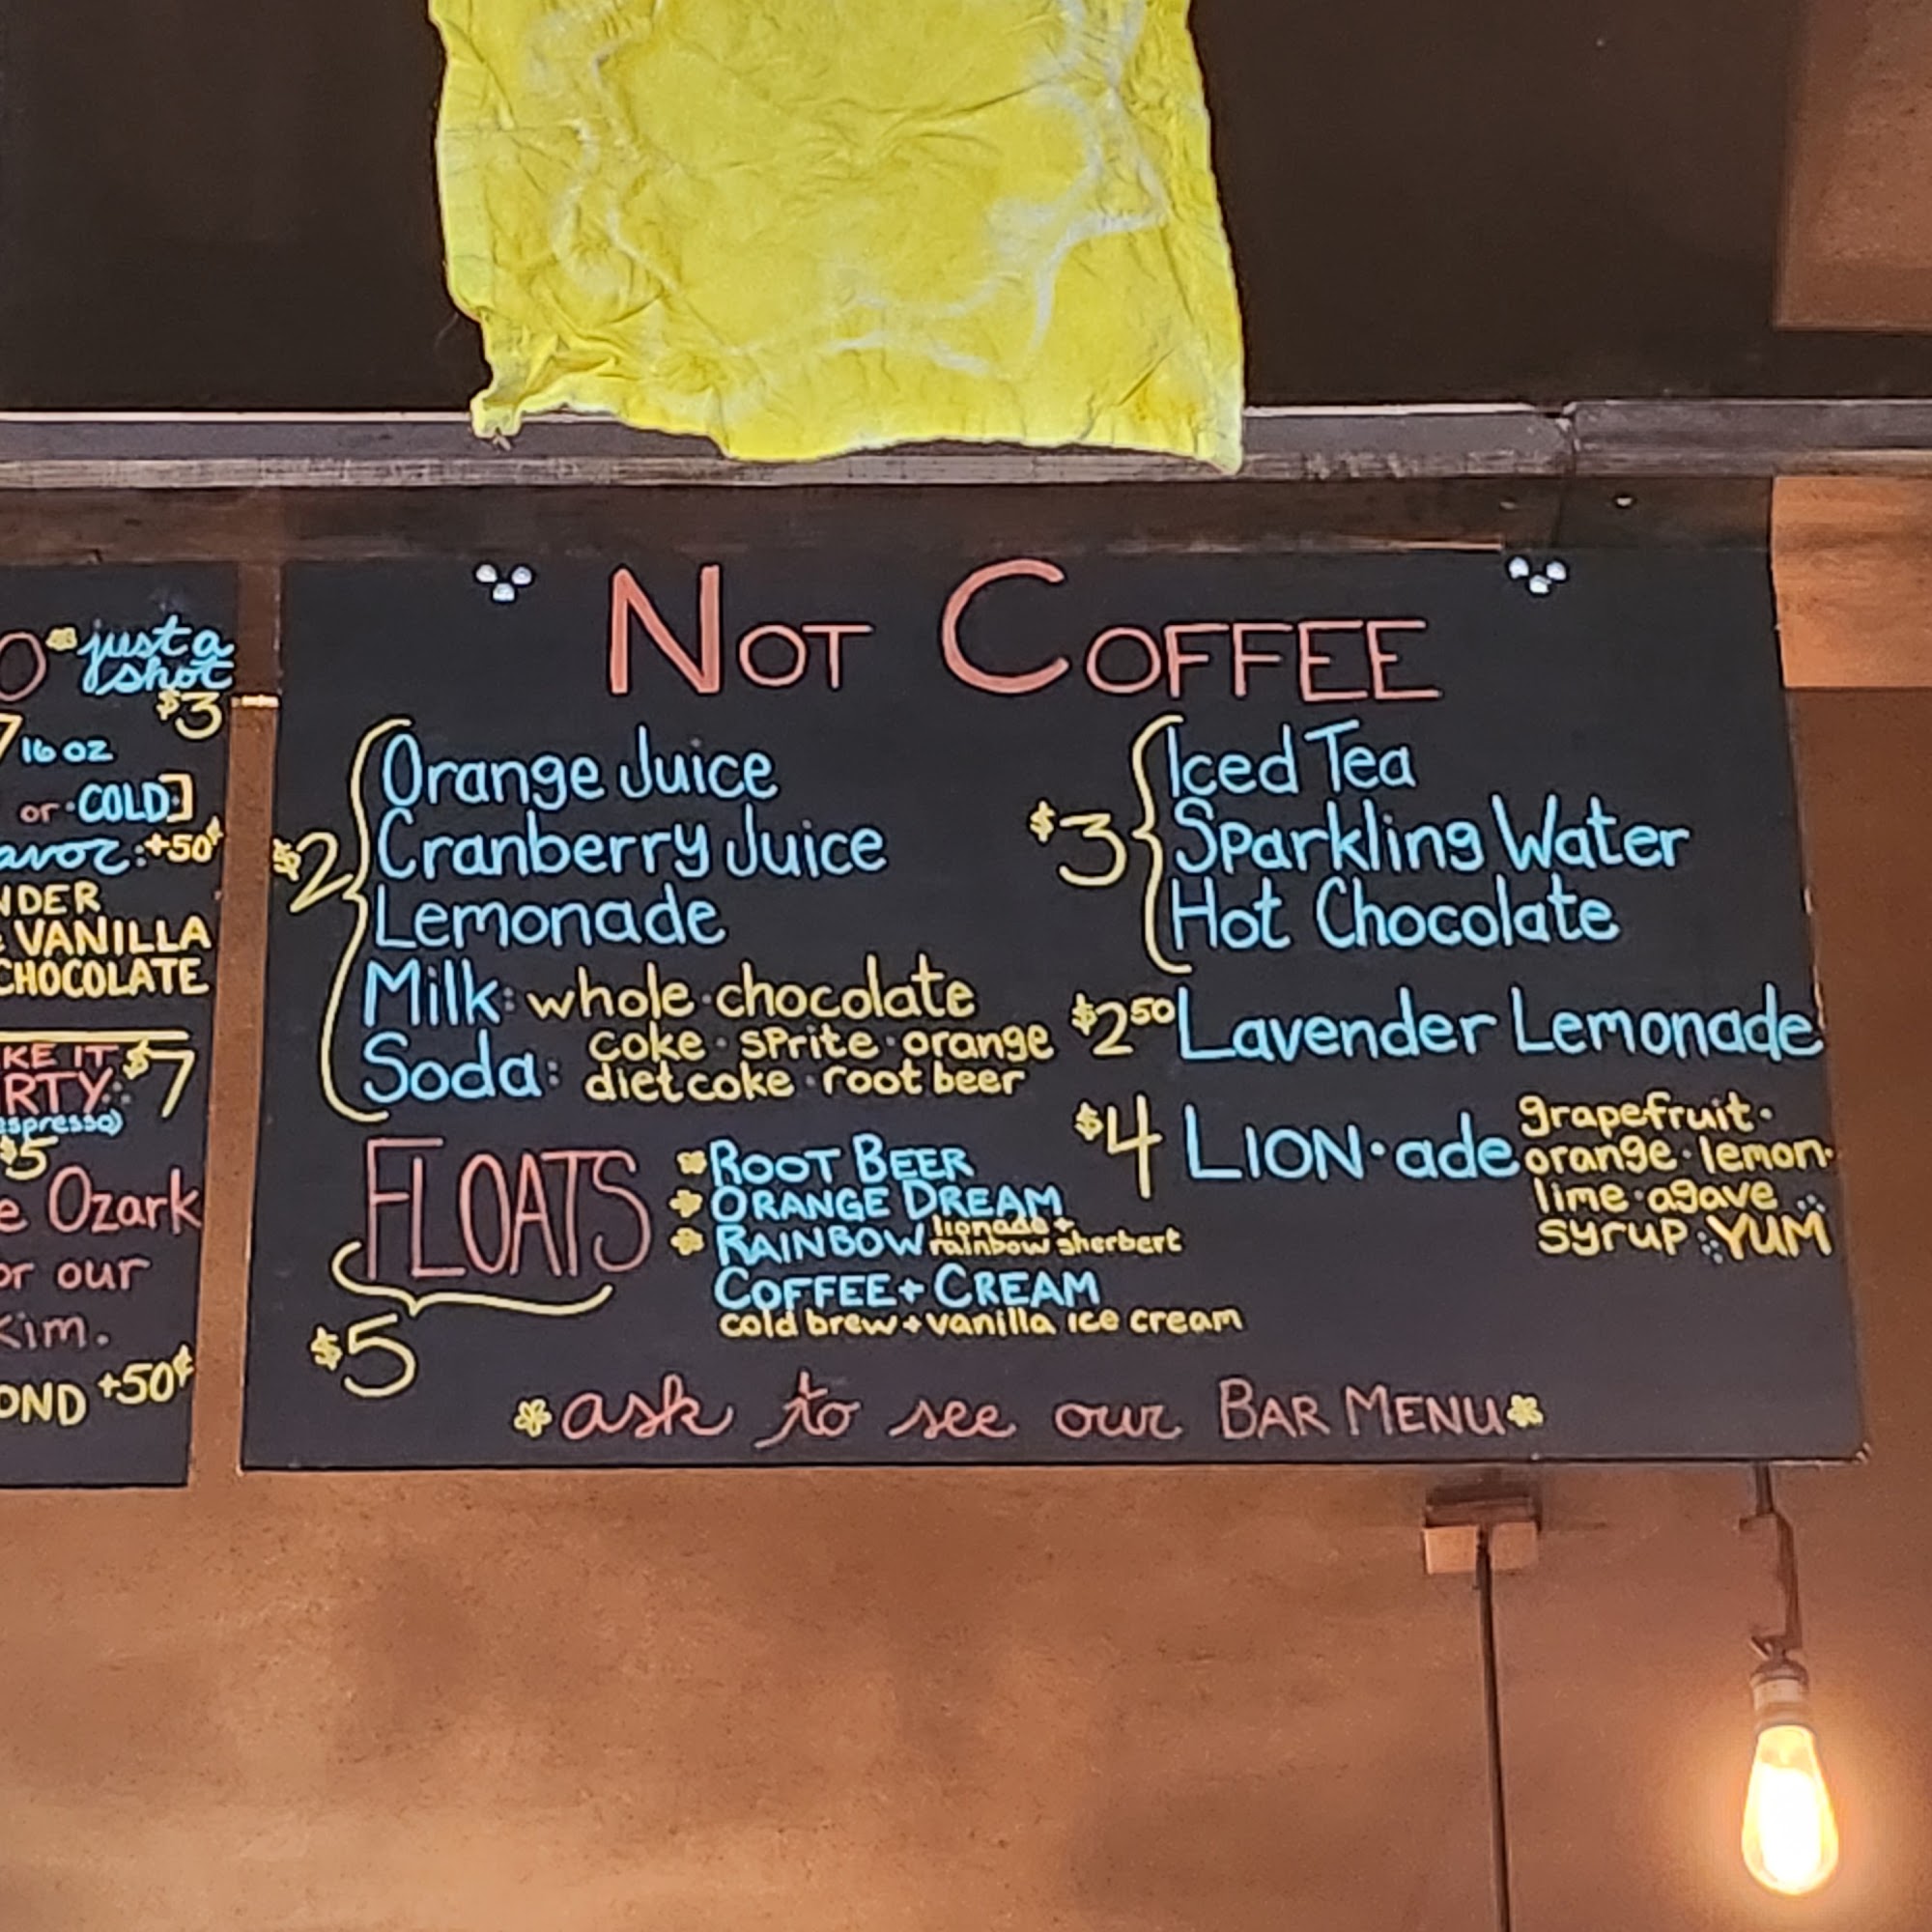 just a
shot
$3
16 oz
or · COLD]
+50¢
VANILLA
CHOCOLATE
KE IT $7
RTY:
espresso)
$5
e Ozark
or our
Kim.
OND +50¢
NOT COFFEE
$2
Orange Juice
Cranberry Juice
Lemonade
Milk: whole · chocolate
Soda: coke · sprite · orange
diet coke · root beer
FLOATS
$5
ROOT BEER
ORANGE DREAM
RAINBOW lionade +
rainbow sherbert
COFFEE + CREAM
cold brew + vanilla ice cream
$3
Iced Tea
Sparkling Water
Hot Chocolate
$2.50 Lavender Lemonade
$4 LION·ade grapefruit ·
orange · lemon ·
lime · agave
syrup YUM
ask to see our BAR MENU